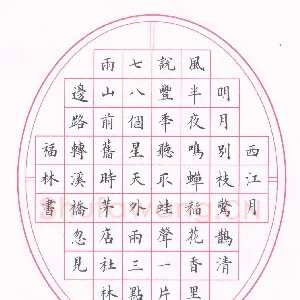 西江月
明月別枝驚鵲清
風半夜鳴蟬稻花香里
說豐秊聽取蛙聲一片
七八個星天外兩三點
雨山前舊時茅店社林
邊路轉溪橋忽見
福林書